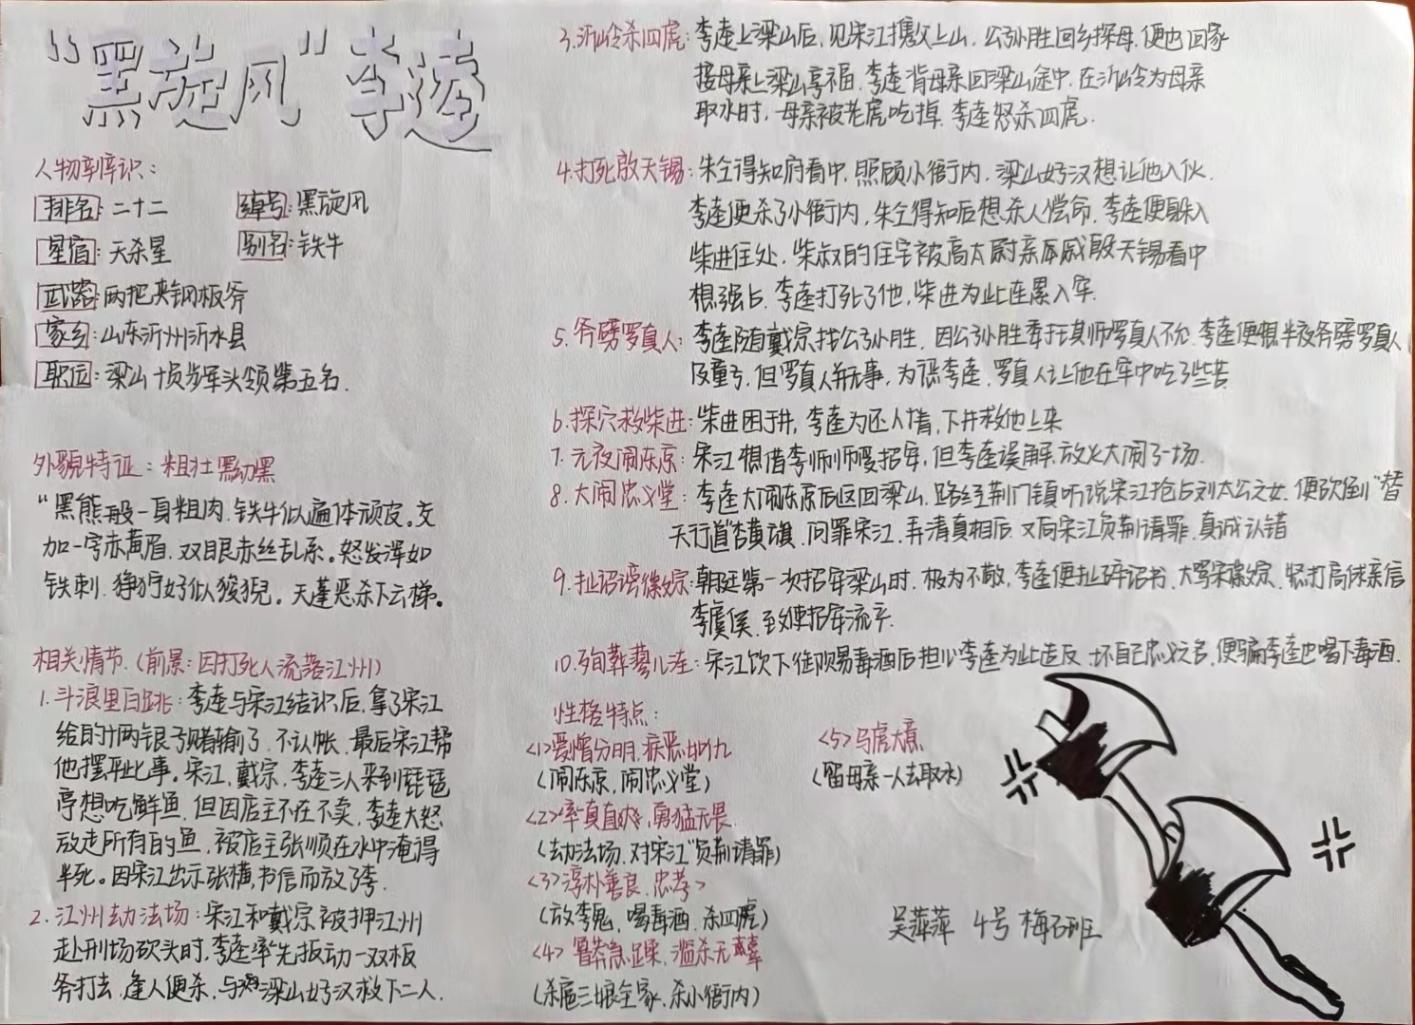 “黑旋风”李逵
人物事识：
排名：二十二 绰号：黑旋风
星宿：天杀星 别名：铁牛
武器：两把夹钢板斧
家乡：山东沂州沂水县
职位：梁山十员步军头领第五名．
外貌特征：粗壮黝黑
“黑熊般一身粗肉．铁牛似遍体顽皮。交
加一字赤黄眉．双眼赤丝乱系。怒发浑如
铁刺．狰狞好似狻猊。天蓬恶杀下云梯。
相关情节．（前景：因打死人流落江州）
1.斗浪里白跳：李逵与宋江结识后，拿了宋江
给的十两银子赌输了．不认帐．最后宋江帮
他摆平此事。宋江，戴宗，李逵三人来到琵琶
亭想吃鲜鱼，但因店主不在不卖，李逵大怒
放走所有的鱼，被店主张顺在水中淹得
半死。因宋江出示张横，书信而放了李．
2．江州劫法场：宋江和戴宗被押江州
赴刑场砍头时，李逵率先扳动一双板
斧打去．逢人便杀．与梁山好汉救下二人．
3．沂岭杀四虎：李逵上梁山后，见宋江携父上山．公孙胜回乡探母．便也回家
接母亲上梁山享福．李逵背母亲回梁山途中．在沂岭为母亲
取水时，母亲被老虎吃掉．李逵怒杀四虎．
4.打死殷天锡：朱仝得知府看中，照顾小衙内．梁山好汉想让他入伙．
李逵便杀了小衙内，朱仝得知后想杀人偿命．李逵便躲入
柴进住处．柴叔的住宅被高太尉亲戚殷天锡看中
想强占．李逵打死了他，柴进为此连累入牢．
5．斧劈罗真人：李逵随戴宗找公孙胜．因公孙胜其师罗真人不允．李逵便想半夜斧劈罗真人
及童子．但罗真人并无事，为惩李逵．罗真人让他在牢中吃了些苦
6.探穴救柴进：柴进困于井，李逵为还人情，下井救他上来
7．元夜闹东京：宋江想借李师师受招安，但李逵误解．放火大闹了一场．
8．大闹忠义堂：李逵大闹东京后返回梁山．路经荆门镇听说宋江抢占刘太公之女．便砍倒“替
天行道”杏黄旗．问罪宋江，弄清真相后．又向宋江负荆请罪．真诚认错
9．扯诏谤徽宗：朝廷第一次招安梁山时．极为不敬，李逵便扯碎诏书．大骂宋徽宗．怒打高俅亲信
李虞侯．致使招安流产．
10．殉葬蓼儿洼：宋江饮下御赐毒酒后担心李逵为此造反．坏自己忠义之名，便骗李逵也喝下毒酒．
性格特点：
<1>爱憎分明．疾恶如仇
（闹东京，闹忠义堂）
<2>率真直爽，勇猛无畏．
（劫法场．对宋江“负荆请罪）
<3>淳朴善良．忠孝>
（放李鬼，喝毒酒．杀四虎）
<4>鲁莽急躁，滥杀无辜
（杀扈三娘全家．杀小衙内）
<5>马虎大意
（留母亲一人去取水）
吴萍萍 4号 梅石班